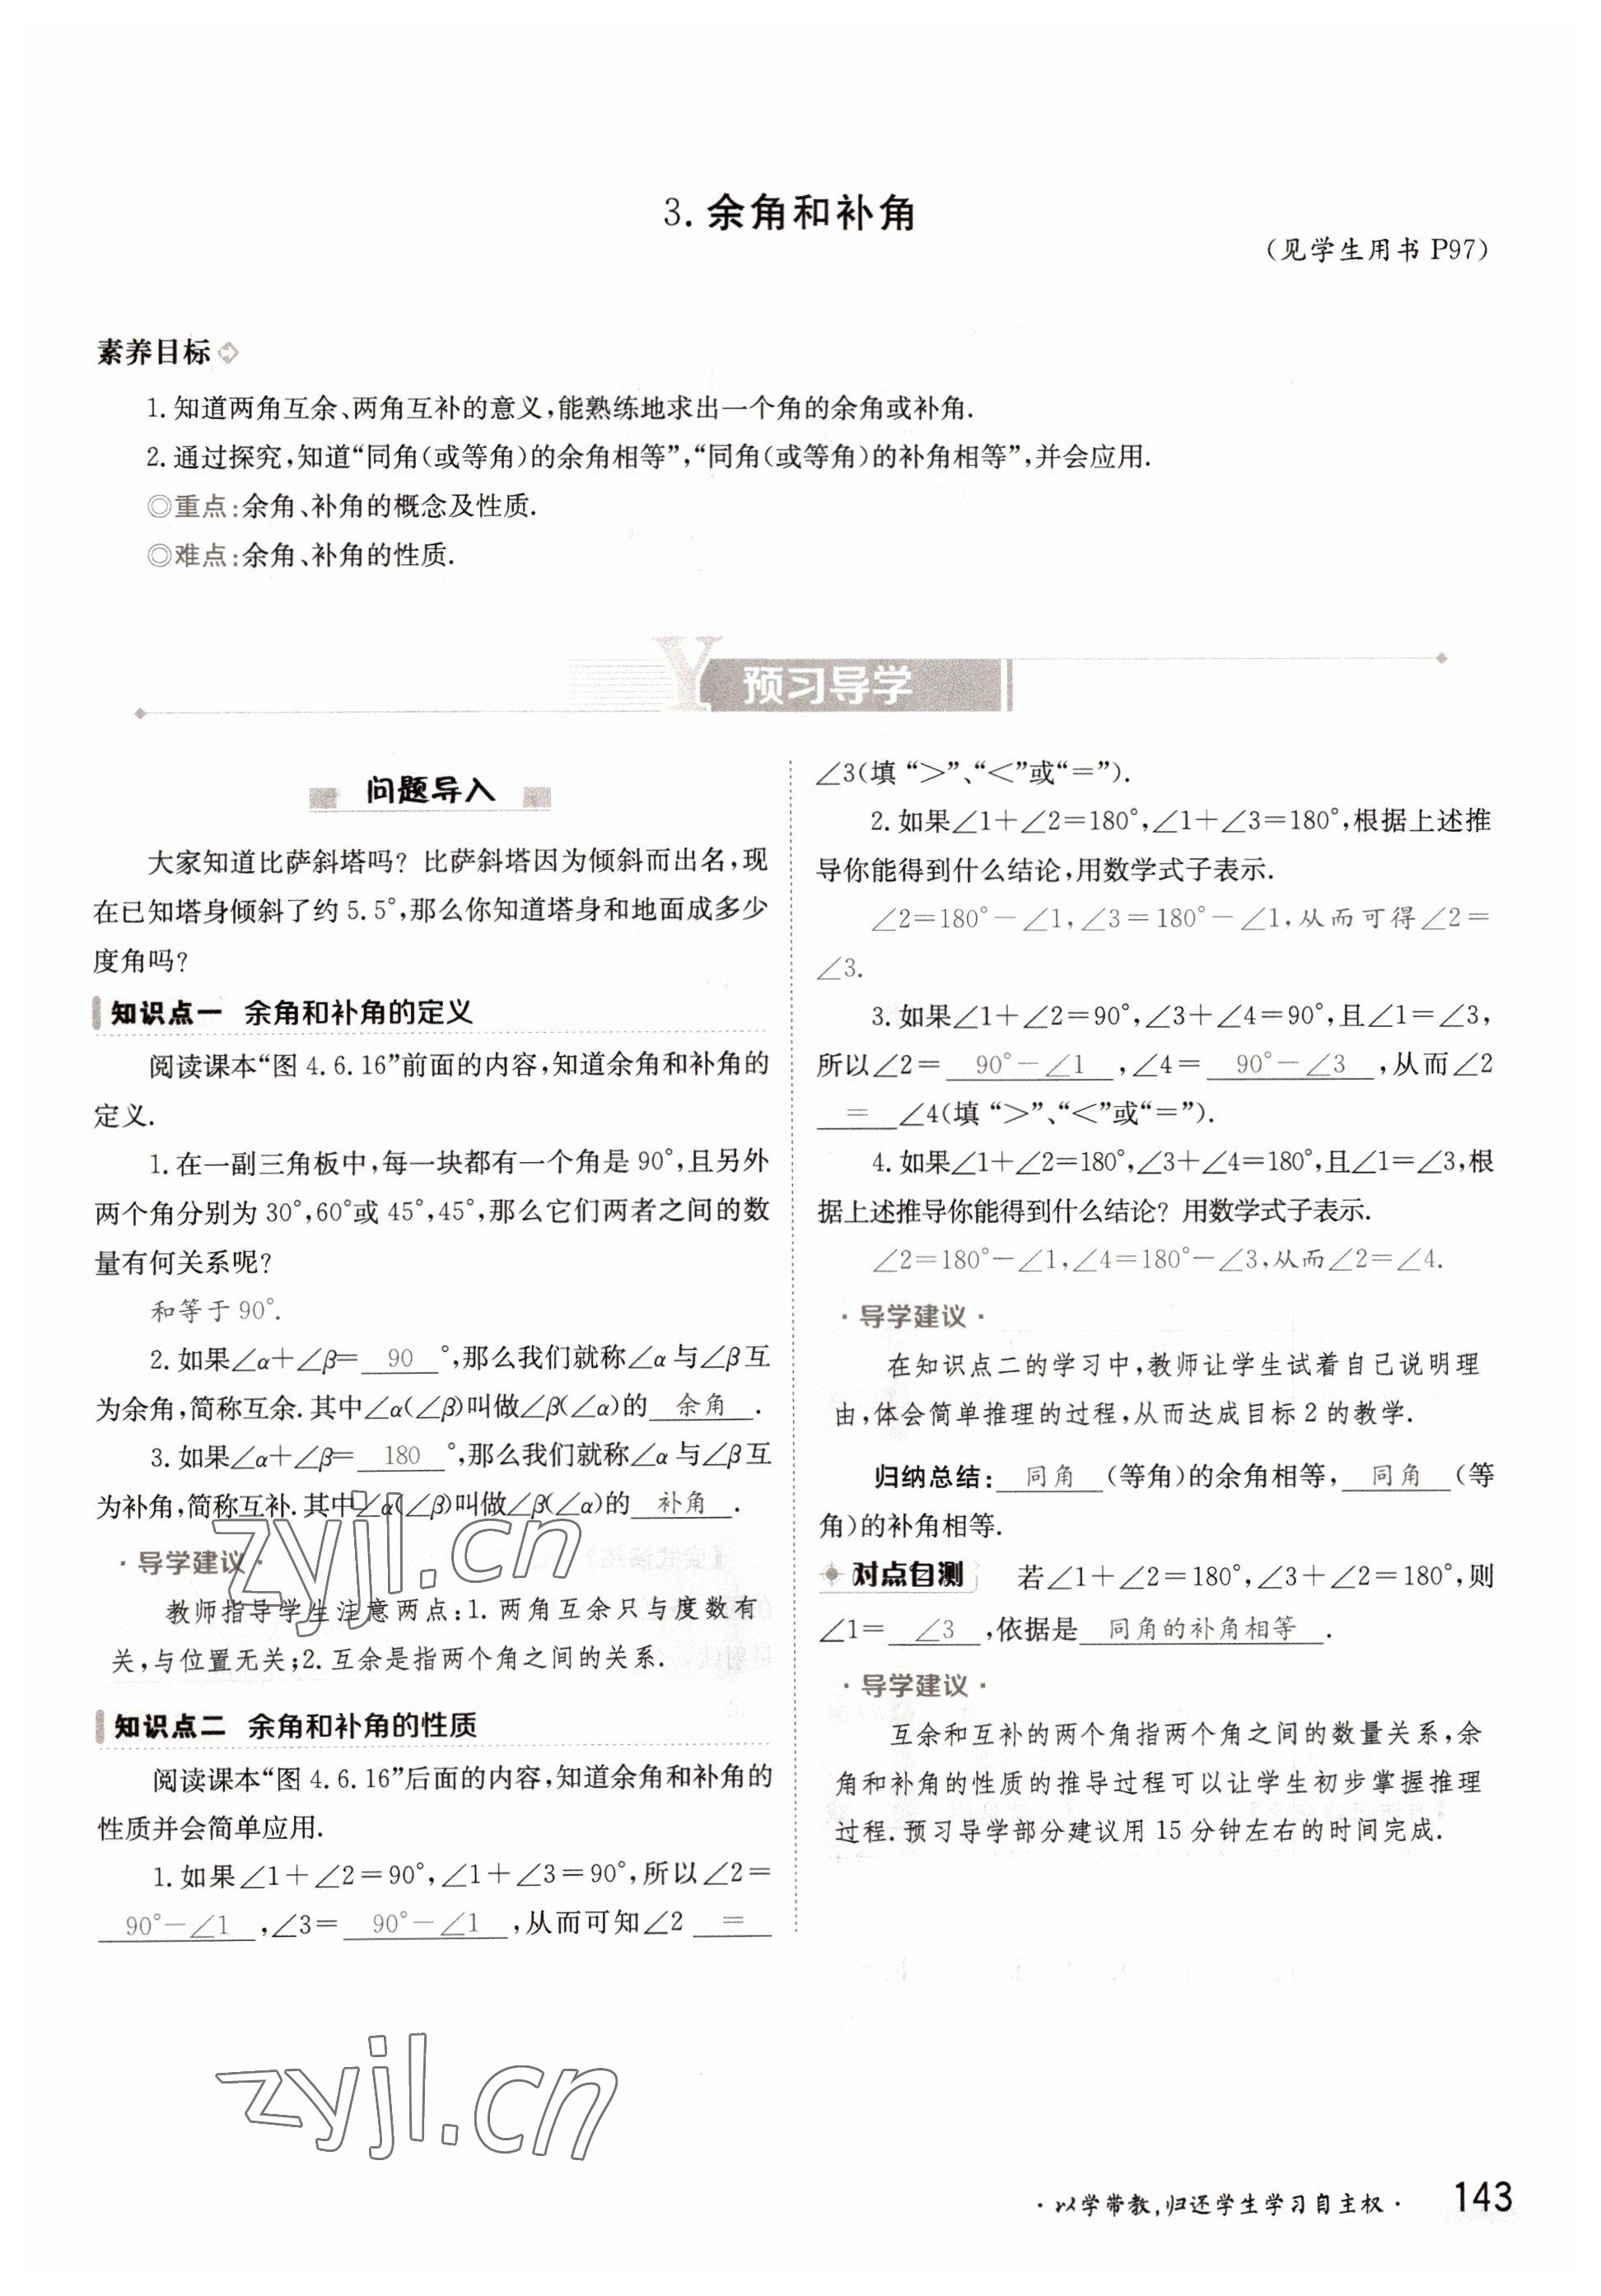 3. 余角和补角
(见学生用书 P97)
素养目标
1. 知道两角互余、两角互补的意义,能熟练地求出一个角的余角或补角.
2. 通过探究,知道“同角(或等角)的余角相等”,“同角(或等角)的补角相等”,并会应用.
◎重点:余角、补角的概念及性质.
◎难点:余角、补角的性质.
Y 预习导学
问题导入
大家知道比萨斜塔吗? 比萨斜塔因为倾斜而出名,现
在已知塔身倾斜了约 5.5°,那么你知道塔身和地面成多少
度角吗?
知识点一 余角和补角的定义
阅读课本“图 4.6.16”前面的内容,知道余角和补角的
定义.
1. 在一副三角板中,每一块都有一个角是 90°,且另外
两个角分别为 30°,60°或 45°,45°,那么它们两者之间的数
量有何关系呢?
和等于 90°.
2. 如果∠α+∠β= 90 °,那么我们就称∠α与∠β互
为余角,简称互余.其中∠α(∠β)叫做∠β(∠α)的 余角 .
3. 如果∠α+∠β= 180 °,那么我们就称∠α与∠β互
为补角,简称互补.其中∠α(∠β)叫做∠β(∠α)的 补角 .
·导学建议·
教师指导学生注意两点:1. 两角互余只与度数有
关,与位置无关;2. 互余是指两个角之间的关系.
知识点二 余角和补角的性质
阅读课本“图 4.6.16”后面的内容,知道余角和补角的
性质并会简单应用.
1. 如果∠1+∠2=90°,∠1+∠3=90°,所以∠2=
90°-∠1 ,∠3= 90°-∠1 ,从而可知∠2 =
∠3(填“>”、“<”或“=”).
2. 如果∠1+∠2=180°,∠1+∠3=180°,根据上述推
导你能得到什么结论,用数学式子表示.
∠2=180°-∠1,∠3=180°-∠1,从而可得∠2=
∠3.
3. 如果∠1+∠2=90°,∠3+∠4=90°,且∠1=∠3,
所以∠2= 90°-∠1 ,∠4= 90°-∠3 ,从而∠2
= ∠4(填“>”、“<”或“=”).
4. 如果∠1+∠2=180°,∠3+∠4=180°,且∠1=∠3,根
据上述推导你能得到什么结论? 用数学式子表示.
∠2=180°-∠1,∠4=180°-∠3,从而∠2=∠4.
·导学建议·
在知识点二的学习中,教师让学生试着自己说明理
由,体会简单推理的过程,从而达成目标 2 的教学.
归纳总结: 同角 (等角)的余角相等, 同角 (等
角)的补角相等.
对点自测 若∠1+∠2=180°,∠3+∠2=180°,则
∠1= ∠3 ,依据是 同角的补角相等 .
·导学建议·
互余和互补的两个角指两个角之间的数量关系,余
角和补角的性质的推导过程可以让学生初步掌握推理
过程. 预习导学部分建议用 15 分钟左右的时间完成.
zyjl.cn
zyjl.cn
·以学带教,归还学生学习自主权· 143